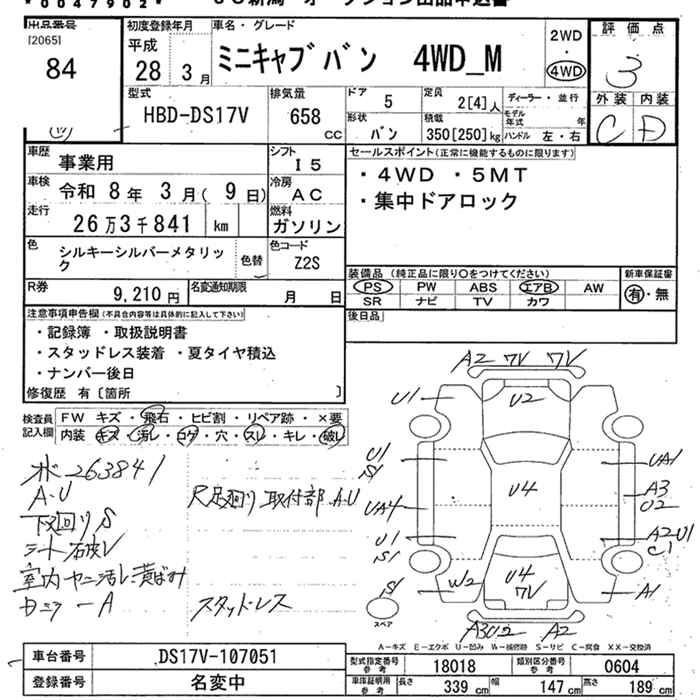 *0047902*
出品番号
[2065]
84
初度登録年月
平成
28年 3月
車名・グレード
ミニキャブバン 4WD_M
2WD
・
4WD
評価点
3
外装 内装
C D
型式
HBD-DS17V
排気量
658 CC
ドア 5
形状 バン
定員 2[4]人
積載 350[250]kg
ディーラー・並行
モデル年式 年
ハンドル 左・右
車歴 事業用
シフト I5
車検 令和 8年 3月( 9日)
冷房 AC
走行 26万3千841 km
燃料 ガソリン
色 シルキーシルバーメタリック
色替
色コード Z2S
R券 9,210円
名変通知期限 月 日
セールスポイント(正常に機能するものに限ります)
・4WD ・5MT
・集中ドアロック
装備品 (純正品に限り○をつけてください)
PS PW ABS エアB AW
SR ナビ TV カワ
新車保証書
有・無
後日品
注意事項申告欄(不具合内容等は具体的に記入して下さい)
・記録簿 ・取扱説明書
・スタッドレス装着 ・夏タイヤ積込
・ナンバー後日
修復歴 有〔箇所 〕
検査員記入欄
FW キズ・飛石・ヒビ割・リペア跡・×要
内装 キズ・汚レ・コゲ・穴・スレ・キレ・破レ
263841
A・U
下廻りS
シート破レ
室内ヤニ汚レ黄ばみ
尺足廻り取付部A・U
スタッドレス
A2 7V 7V
U1
U2
U1
S1
UA1
U4
A3
U2
UA4
U1
S1
A2U1
C1
S1
W2
U4
7V
A1
A3U2 A2
スペア
A-キズ E-エクボ U-凹み W-補修跡 S-サビ C-腐食 XX-交換済
車台番号 DS17V-107051
登録番号 名変中
型式指定番号 参考 18018
類別区分番号 参考 0604
車庫証明用 参考 長さ 339cm 幅 147cm 高さ 189cm